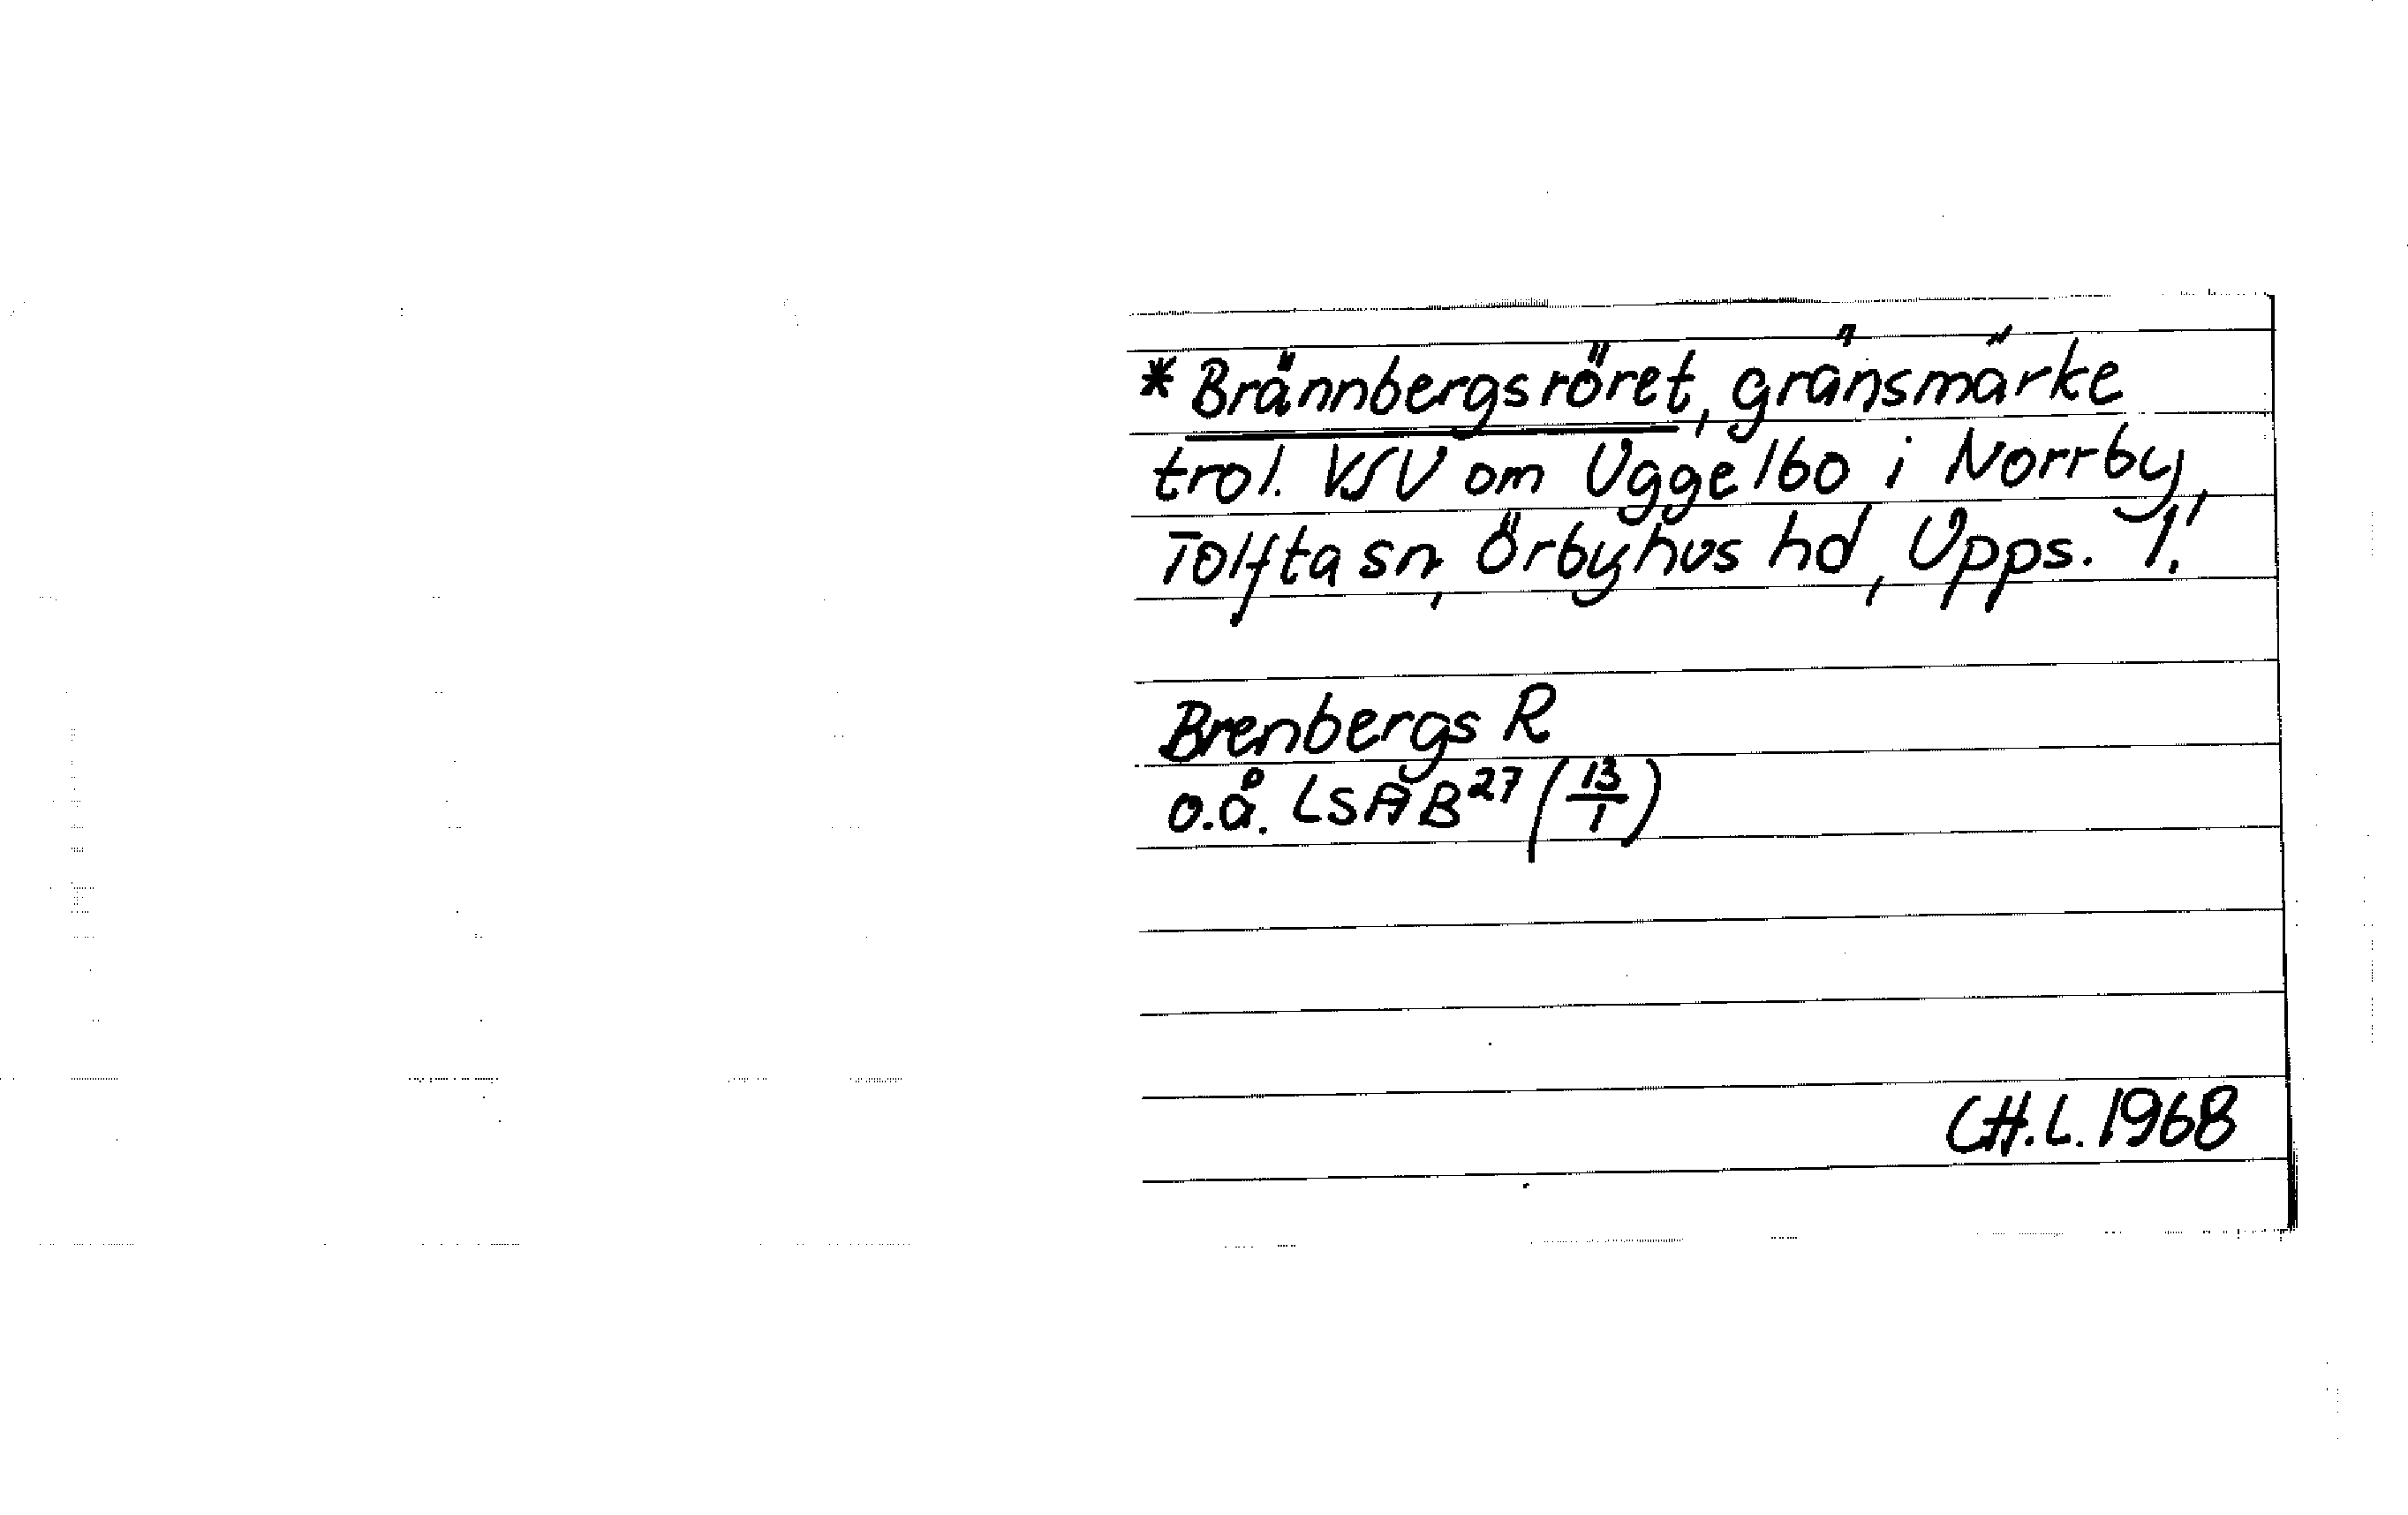 *Brännbergsröret, gränsmärke
trol. VSV om Uggelbo i Norrby,
Tolfta sn, Örbyhus hd, Upps. l.
Brenbergs R
o.å. LSA B²⁷ (13/1)
CH.L. 1968